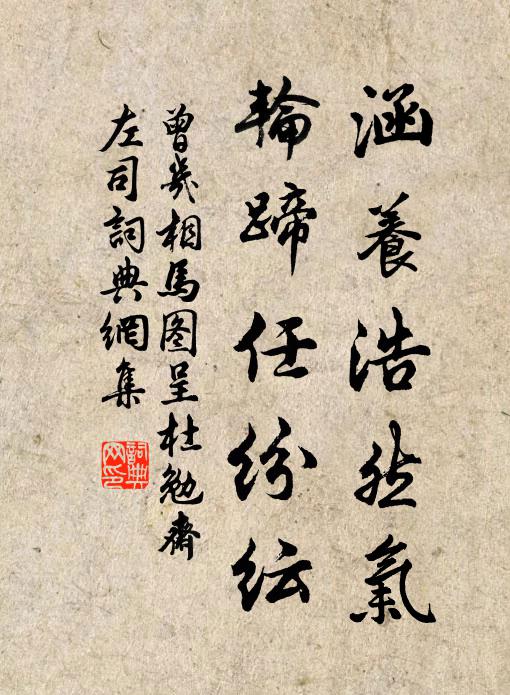 涵養浩然氣
輪蹄任紛紜
曾幾相馬图呈杜勉齋
左司詞典網集
詞典網印